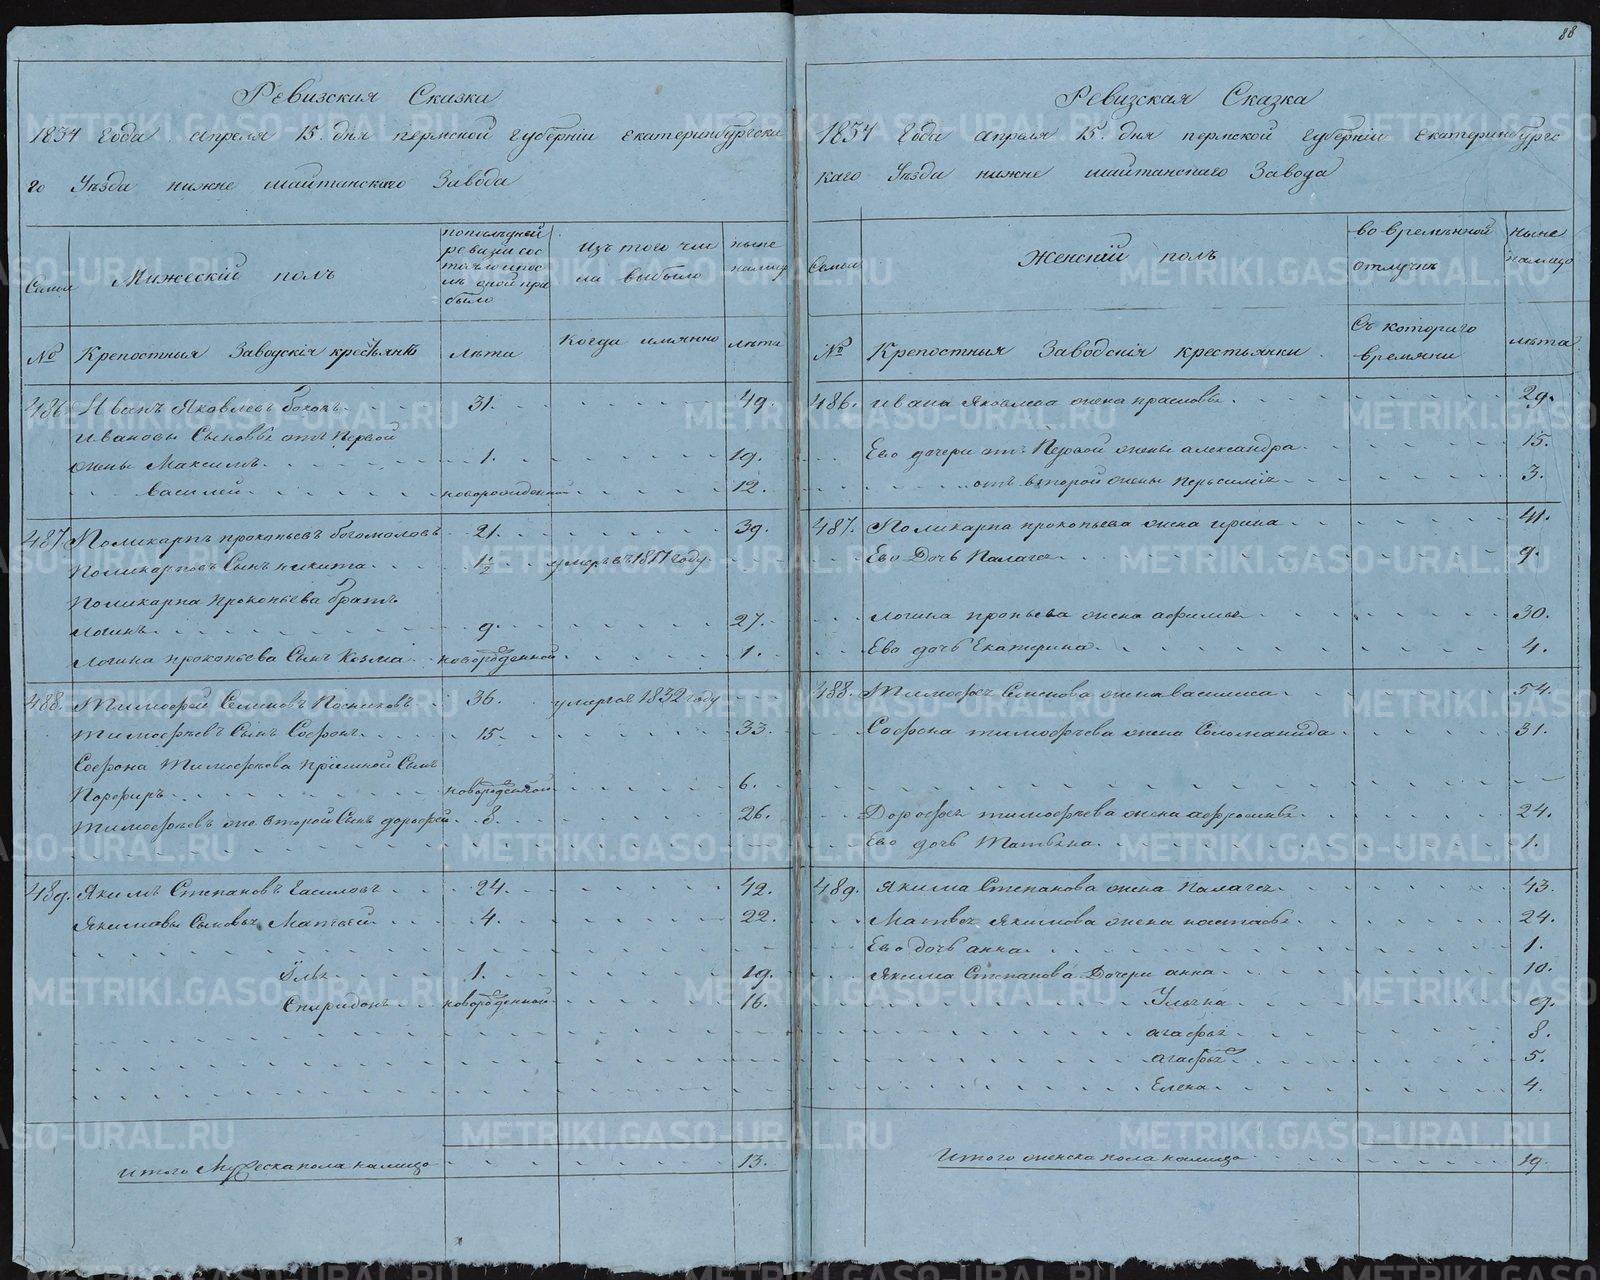 88
Ревизская Сказка
1834 года апреля 15. дня пермской губернiи екатеринбургска
го Уѣзда нижне шайтанскаго Завода
Семьи
Мужескiй полъ
попослѣдней
ревизiи сос
тояло ипос
лѣ оной при
было
Изъ того чис
ла выбыло
ныне
налицо
№
Крепостныя Заводскiя кресьянѣ
Лѣта
Когда имянно
лѣта
486. Иванъ Яковлевъ 31. 49.
Ивановы Сыновья отъ Первой
жены Максимъ 1. 19.
Василей новорожденной 12.
487. Поликарпъ прокопьевъ богомоловъ 21. 39.
Поликарповъ Сынъ никита 1½ умеръ въ 1817 году
Поликарпа Прокопьева братъ
логинъ 9. 27.
Логина прокопьева Сынъ Козма новорожденной 1.
488. Тимофей Семеновъ Посниковъ 36. умерга 1832 году
Тимофѣевъ Сынъ Софронъ 15. 33.
Софрона Тимофѣева прiемной Сынъ
Порфиръ новорожденной 6.
Тимофѣевъ же второй Сынъ дорофей 8. 26.
489. Якимъ Степановъ 24. 42.
Якимовы Сыновья Матвей 4. 22.
Илья 1. 19.
Спиридонъ новорожденной 16.
Итого Мужеска пола налицо 13.
Ревизская Сказка
1834 года апреля 15. дня пермской губернiи екатеринбургс
каго Уѣзда нижне шайтанскаго Завода
Семьи
Женскiй полъ
во времѣнной
отлучкѣ
ныне
налицо
№
Крепостныя Заводскiя крестьянки
Съ котораго
времяни
лѣта
486. ивана Яковлева жена прасковья 29.
Ево дочери отъ Первой жены александра 15.
отъ второй жены 3.
487. Поликарпа прокопьева жена ирина 41.
Ево Дочь Палагея 9.
логина пропьева жена афимья 30.
Ево дочь Екатерина 4.
488. Тимофея Семенова жена василиса 54.
Софрона тимофѣева жена Соломанида 31.
Дорофея тимофѣева жена афросинья 24.
Ево дочь Татьяна 1.
489. Якима Степанова жена Палагея 43.
Матвея якимова жена настасья 24.
Ево дочь анна 1.
Якима Степанова Дочери анна 10.
Ульяна 9.
агафья 8.
агафья 5.
Елена 4.
Итого женска пола налицо 19.
METRIKI.GASO-URAL.RU